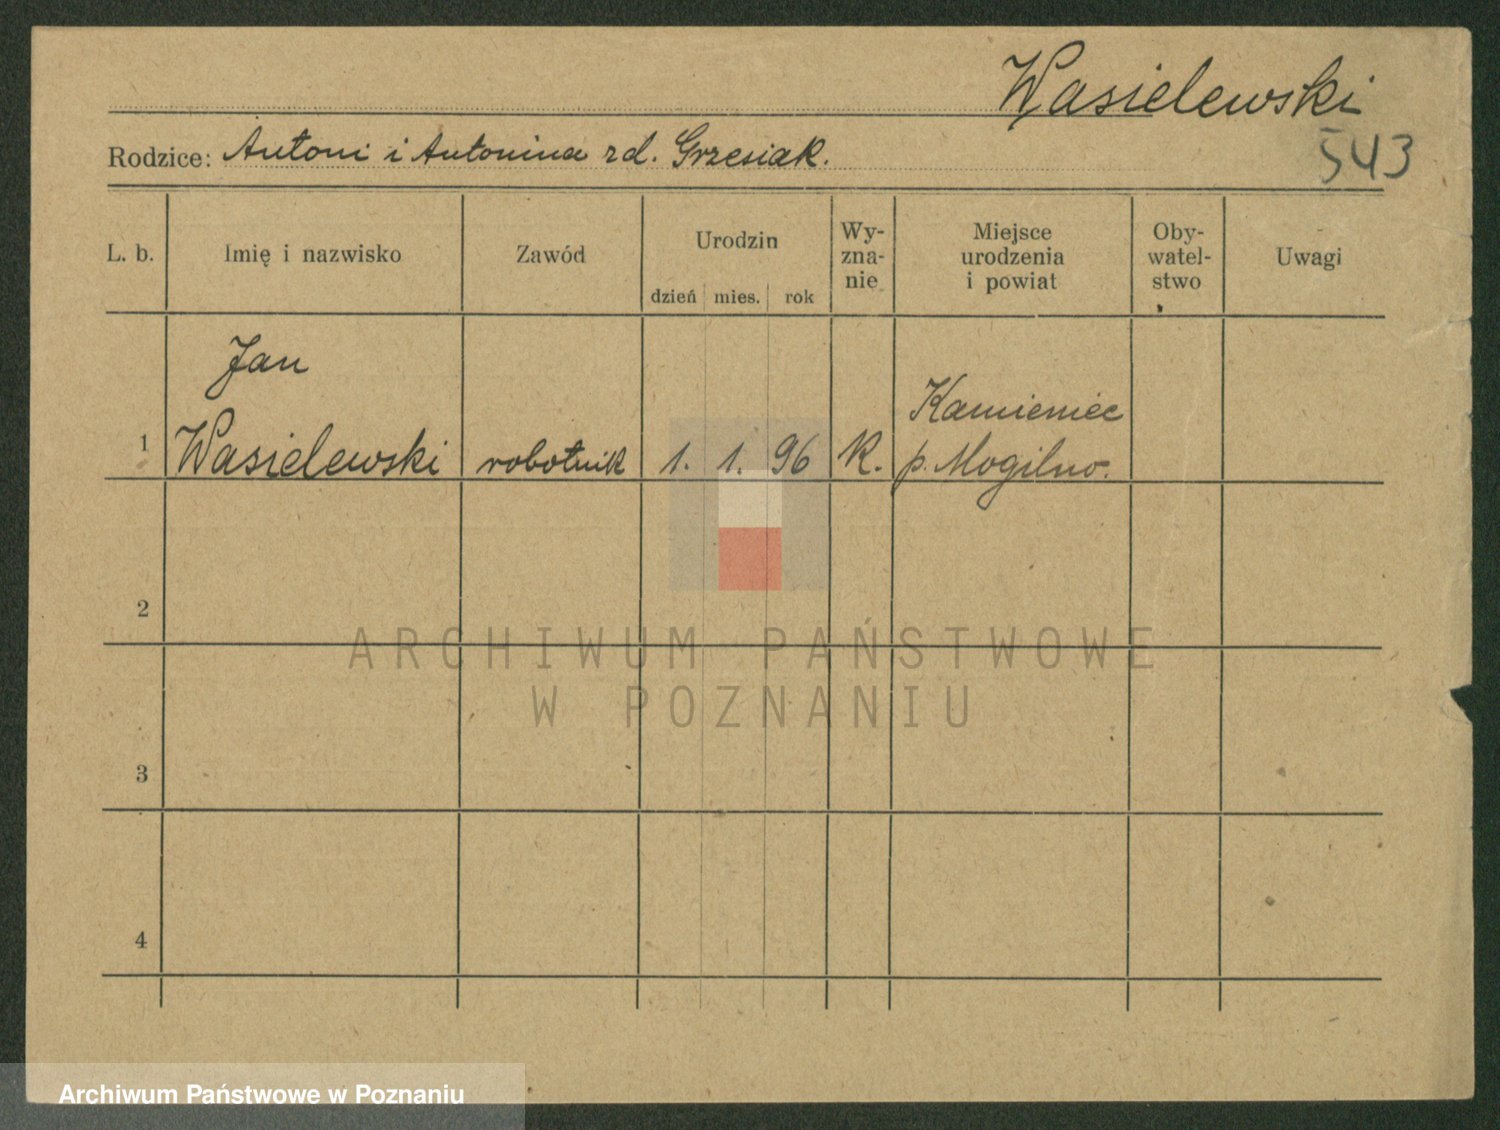 Wasielewski
Rodzice: Antoni i Antonina zd. Grzesiak.
543
L. b.
Imię i nazwisko
Zawód
Urodzin
dzień mies. rok
Wy-
zna-
nie
Miejsce
urodzenia
i powiat
Oby-
watel-
stwo
Uwagi
1
Jan
Wasielewski
robotnik
1. 1. 96
K.
Kamieniec
p. Mogilno.
2
3
4
ARCHIWUM PAŃSTWOWE
W POZNANIU
Archiwum Państwowe w Poznaniu